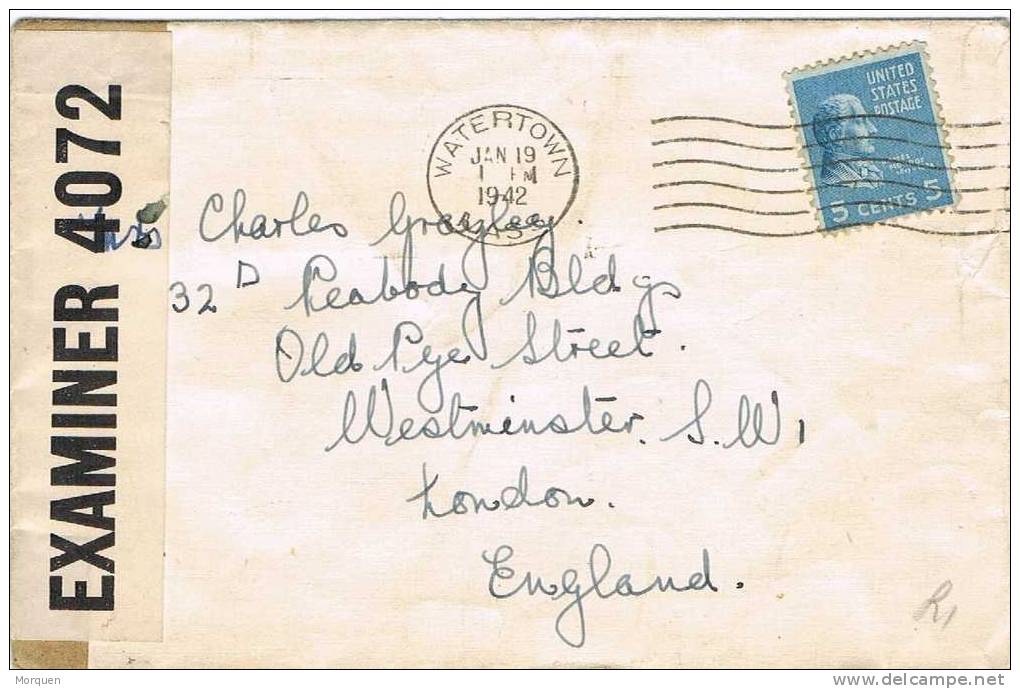 EXAMINER 4072
WATERTOWN
JAN 19
1 PM
1942
MASS.
UNITED
STATES
POSTAGE
5 CENTS 5
Mrs
Charles Grayley.
32 D Peabody Bldgs
Old Pye Street.
Westminster. S.W1
London.
England.
R1
Morquen
delcampe.net